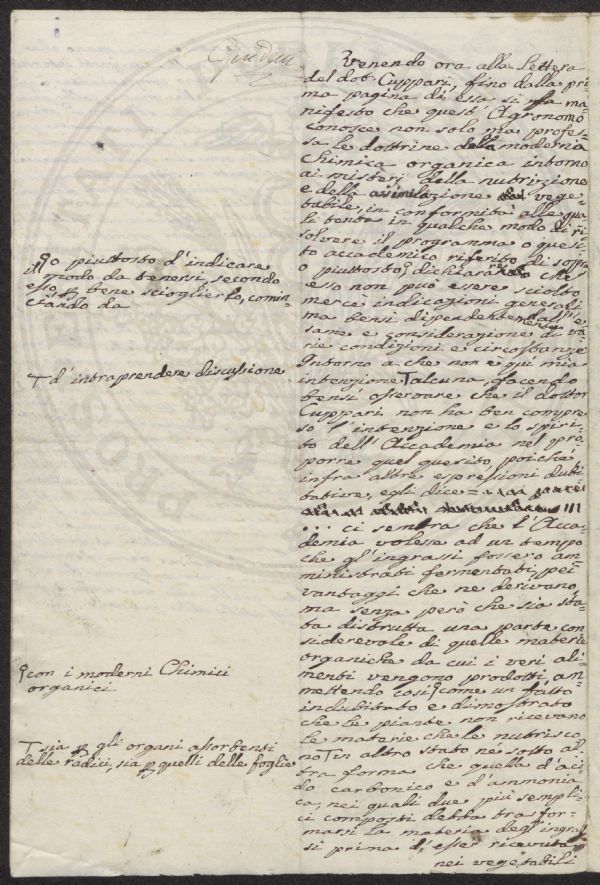 Venendo ora alla Lettera
del dot. Cuppari, fino dalla pri=
ma pagina di essa si fa ma=
nifesto che quest' Agronomo
conosce non solo ma profes=
sa le dottrine della moderna
Chimica organica intorno
ai misteri della nutrizione
e della assimilazione dei vege=
tabile, in conformità alle qua=
li tenta in qualche modo di ri=
solvere il programma o quesi=
to accademico riferito di sopra
o piuttosto, dichiara che
esso non può essere sciolto
merce indicazioni generali
ma bensi dipendentemente dall' e=
same e considerazione di va=
rie condizioni e circostanze
Intorno a che non è qui mia
intenzione T alcuna, facendo
bensì osservare che il dottor
Cuppari non ha ben compre=
so l'intenzione e lo spiri=
to dell' Accademia nel pro=
porre quel quesito poichè
infra altre espressioni dubi=
tative, egli dice=
... ci sembra che l'Acca=
demia volesse ad un tempo
che gl'ingrassi fossero am=
ministrati fermentati, pei
vantaggi che ne derivano,
ma senza però che sia sta=
ta distrutta una parte con=
siderevole di quelle materie
organiche da cui i veri ali=
menti vengono prodotti, am=
mettendo così come un fatto
indubitato e dimostrato
che le piante non ricevano
le materie che le nutrisco=
no T in altro stato nè sotto al=
tra forma che quella d'aci=
do carbonico e d'ammonia=
ca, nei quali due più sempli=
ci composti detta trasfor=
marsi la materia degl'ingras=
si prima d'esser ricevuta
nei vegetabili
o piuttosto d'indicare
il modo da tenersi, secondo
esso, p bene scioglierlo, comin=
ciando da
T d'intraprendere discussione
con i moderni Chimici
organici
T sia p gli organi assorbenti
delle radici, sia p quelli delle foglie